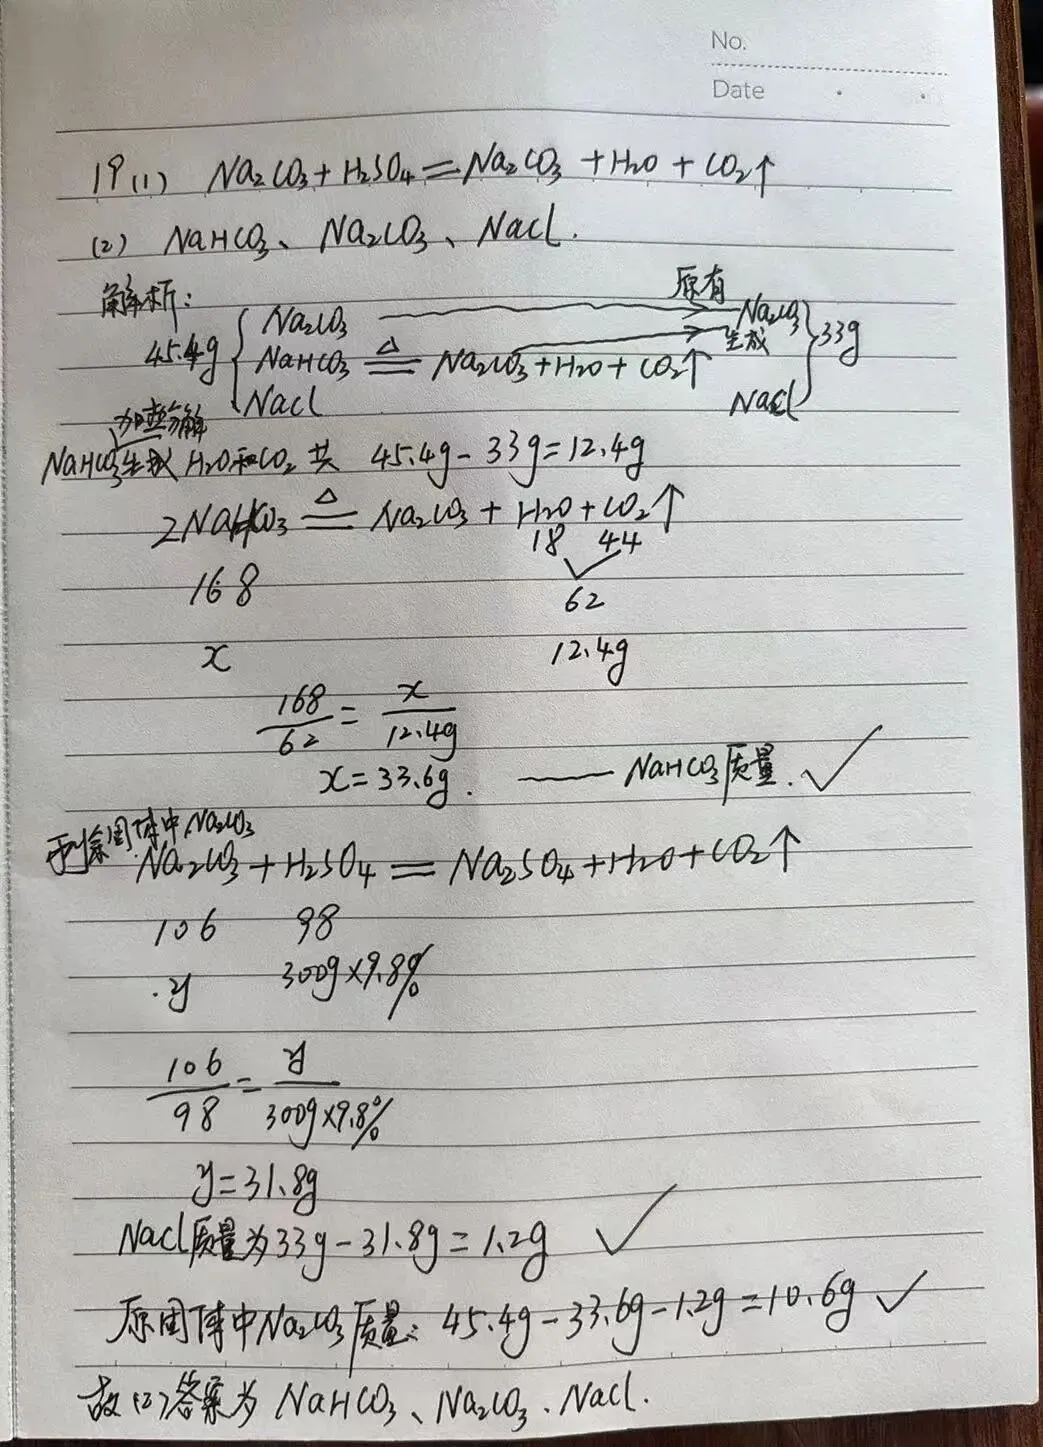 No.
Date
19 (1) Na₂CO₃ + H₂SO₄ = Na₂CO₃ + H₂O + CO₂↑
(2) NaHCO₃、Na₂CO₃、NaCl.
解析:
原有
45.4g { Na₂CO₃ → Na₂CO₃ } 33g
NaHCO₃ =△= Na₂CO₃ + H₂O + CO₂↑ → 生成
NaCl NaCl
加热分解
NaHCO₃生成 H₂O和CO₂ 共 45.4g - 33g = 12.4g
2NaHCO₃ =△= Na₂CO₃ + H₂O + CO₂↑
18 44
168 62
x 12.4g
168/62 = x/12.4g
x = 33.6g. —— NaHCO₃质量. ✓
固体中Na₂CO₃
Na₂CO₃ + H₂SO₄ = Na₂SO₄ + H₂O + CO₂↑
106 98
y 300g×9.8%
106/98 = y/300g×9.8%
y = 31.8g
NaCl质量为33g - 31.8g = 1.2g ✓
原固体中Na₂CO₃质量: 45.4g - 33.6g - 1.2g = 10.6g ✓
故(2)答案为 NaHCO₃、Na₂CO₃、NaCl.